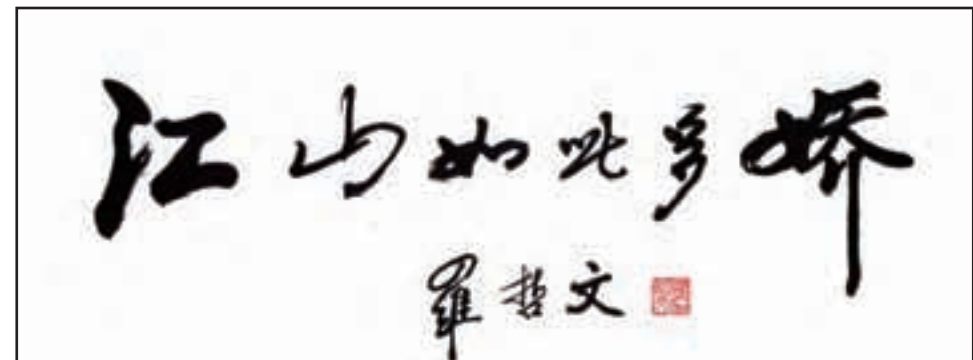 江山如此多娇
羅哲文